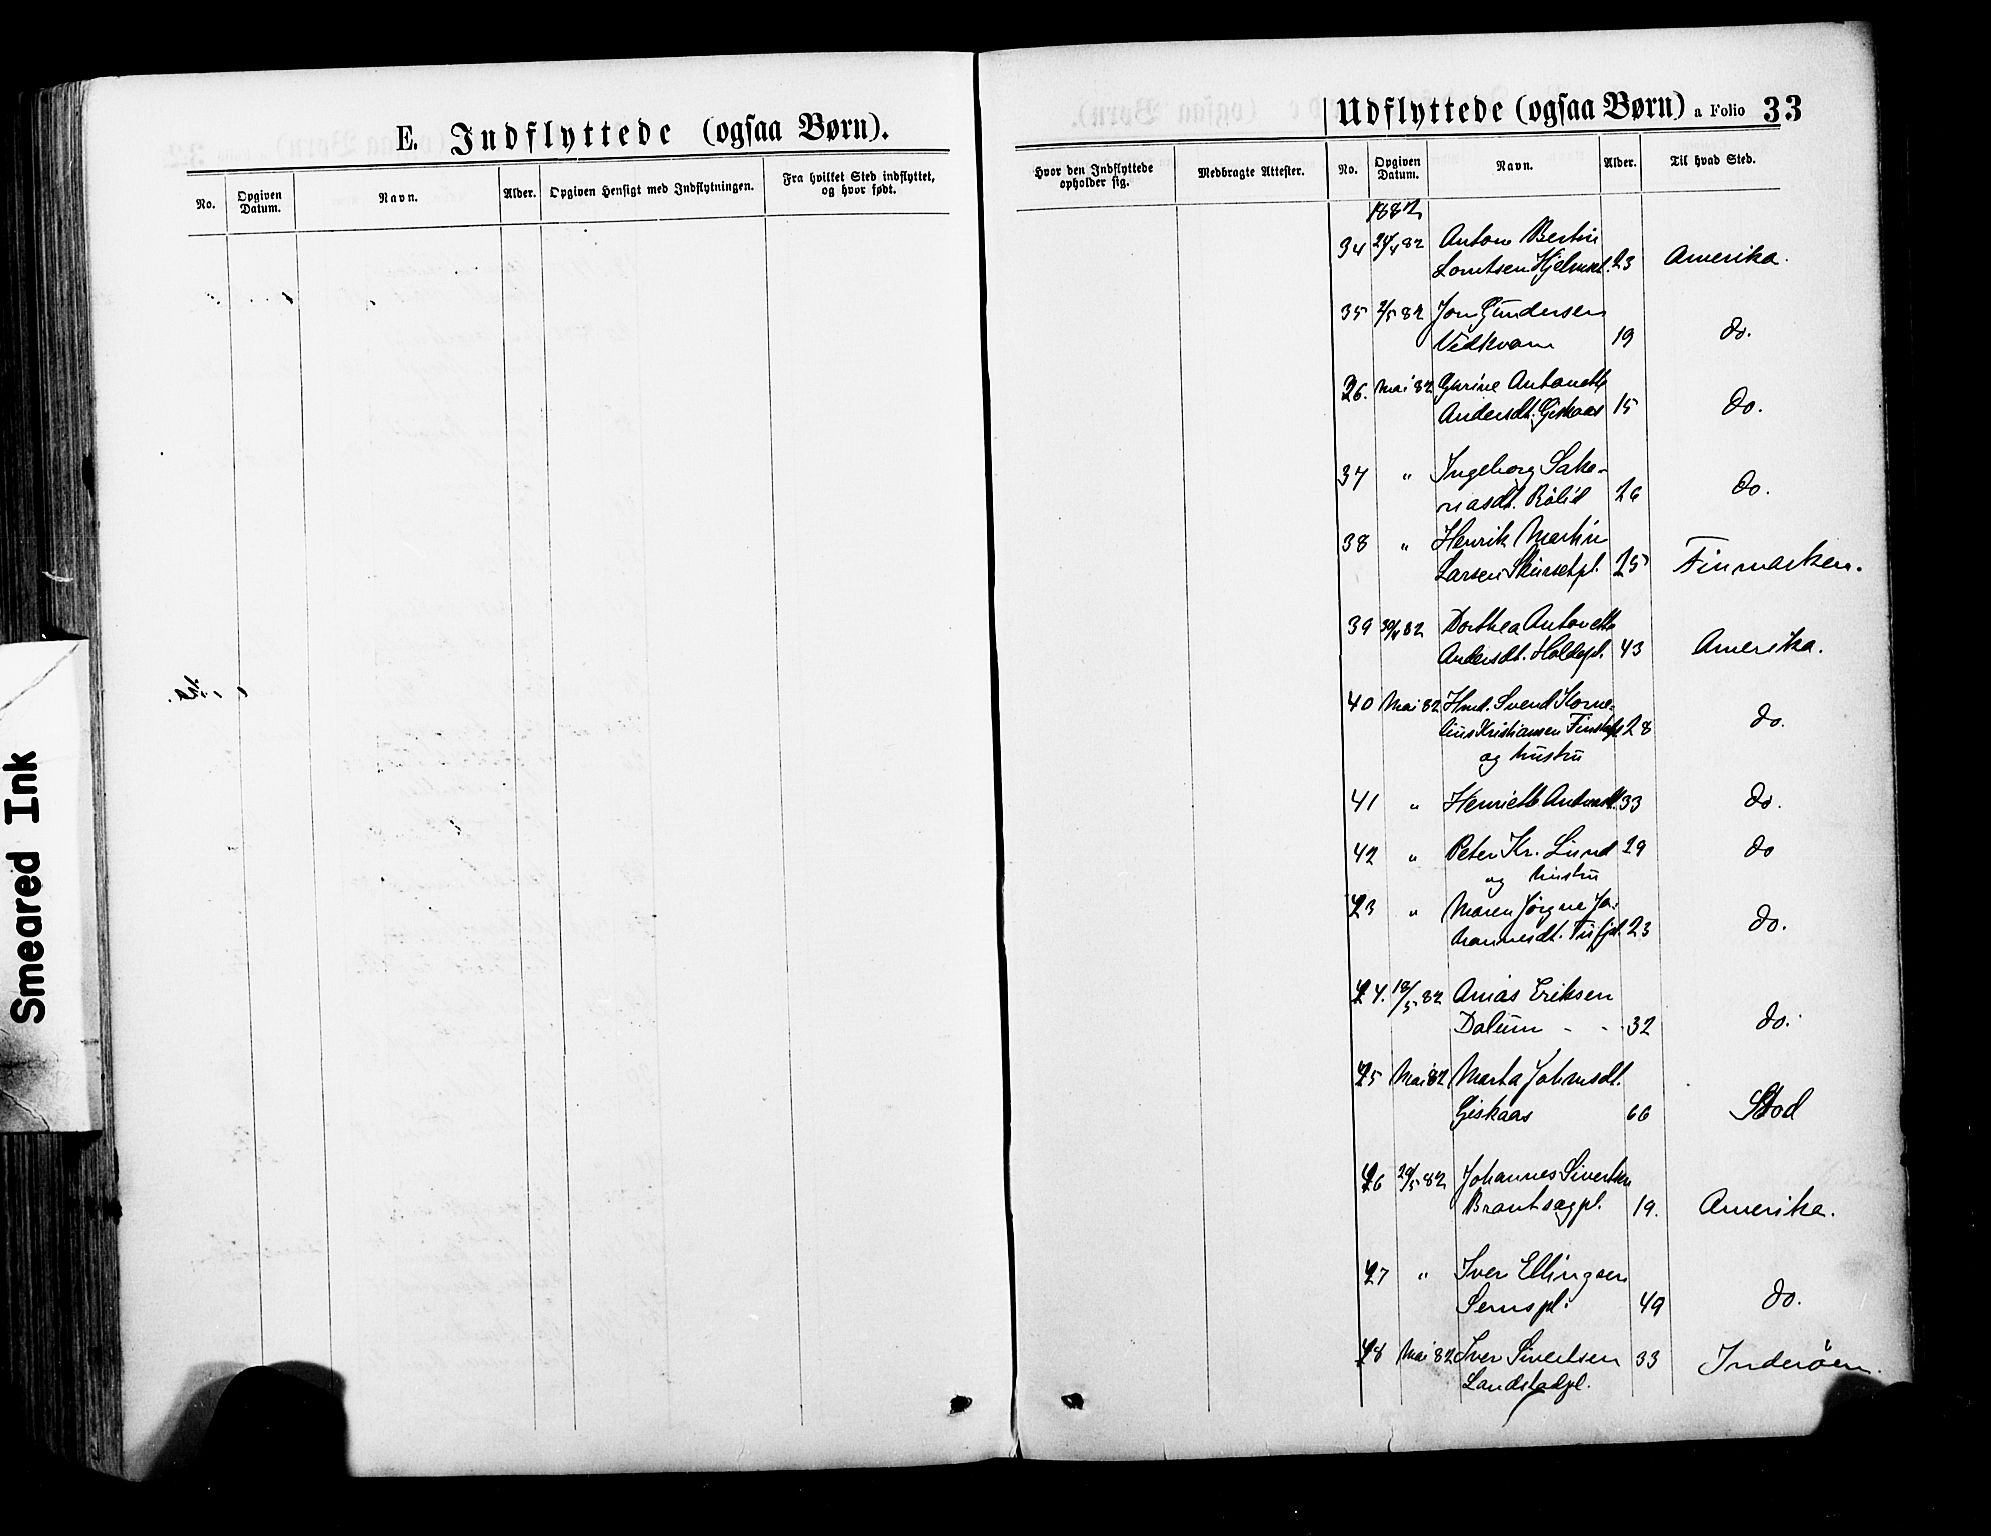 E. Indflyttede (ogsaa Børn).
No. Opgiven Datum. Navn. Alder. Opgiven Hensigt med Indflytningen. Fra hvilket Sted indflyttet, og hvor født.
Udflyttede (ogsaa Børn) a Folio 33
Hvor den Indflyttede opholder sig. Medbragte Attester. No. Opgiven Datum. Navn. Alder. Til hvad Sted.
1882
34 24/4 82 Anton Bertin
23 Amerika.
35 2/5 82 Jon Gundersen
Vedkvam 19 do.
36. Mai 82 Gurine Antonette
Andersdt. Giskaas 15 do.
37 " Ingeborg Saka-
riasdt. Rólid 26 do.
38 " Henrik Martin
Larsen 25 Finmarken.
39 82 Dorthea Antonette
Andersdt. 43 Amerika.
40 Mai 82 Svend Korne-
lius Kristiansen 28 do.
og hustru
41 " Henriette 33 do.
42 " Peter Kr. Lund 29 do
og hustru
43 " Maren Jørgine Jo-
hannesdt. 23 do.
44. 18/5 82 Anias Eriksen
Dalum - - 32 do.
45 Mai 82 Marta Johnsdt.
Giskaas 66 Stod
46 29/5 82 Johannes Sivertsen
Brantsegpl. 19. Amerika.
47 " Iver Ellingsen
Semspl. 49 do.
48 Mai 82 Iver Sivertsen 33 Inderöen.
Landstadpl.
Smeared Ink